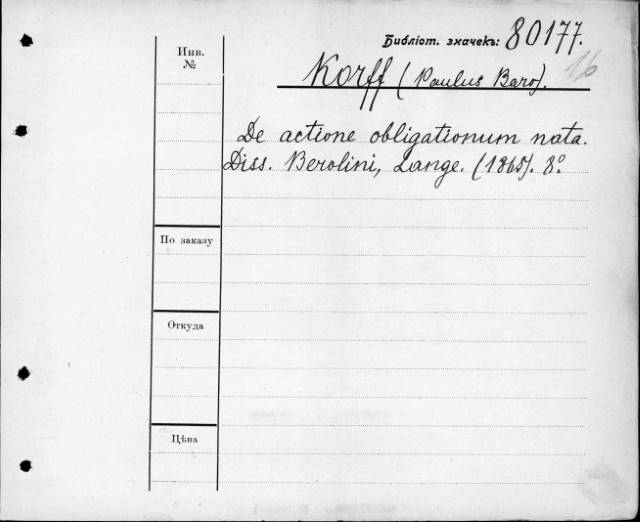 Библіот. значекъ: 80177.
16
Инв.
№
Korff (Paulus Baro).
De actione obligationum nata.
Diss. Berolini, Lange. (1865). 8°.
По заказу
Откуда
Цѣна